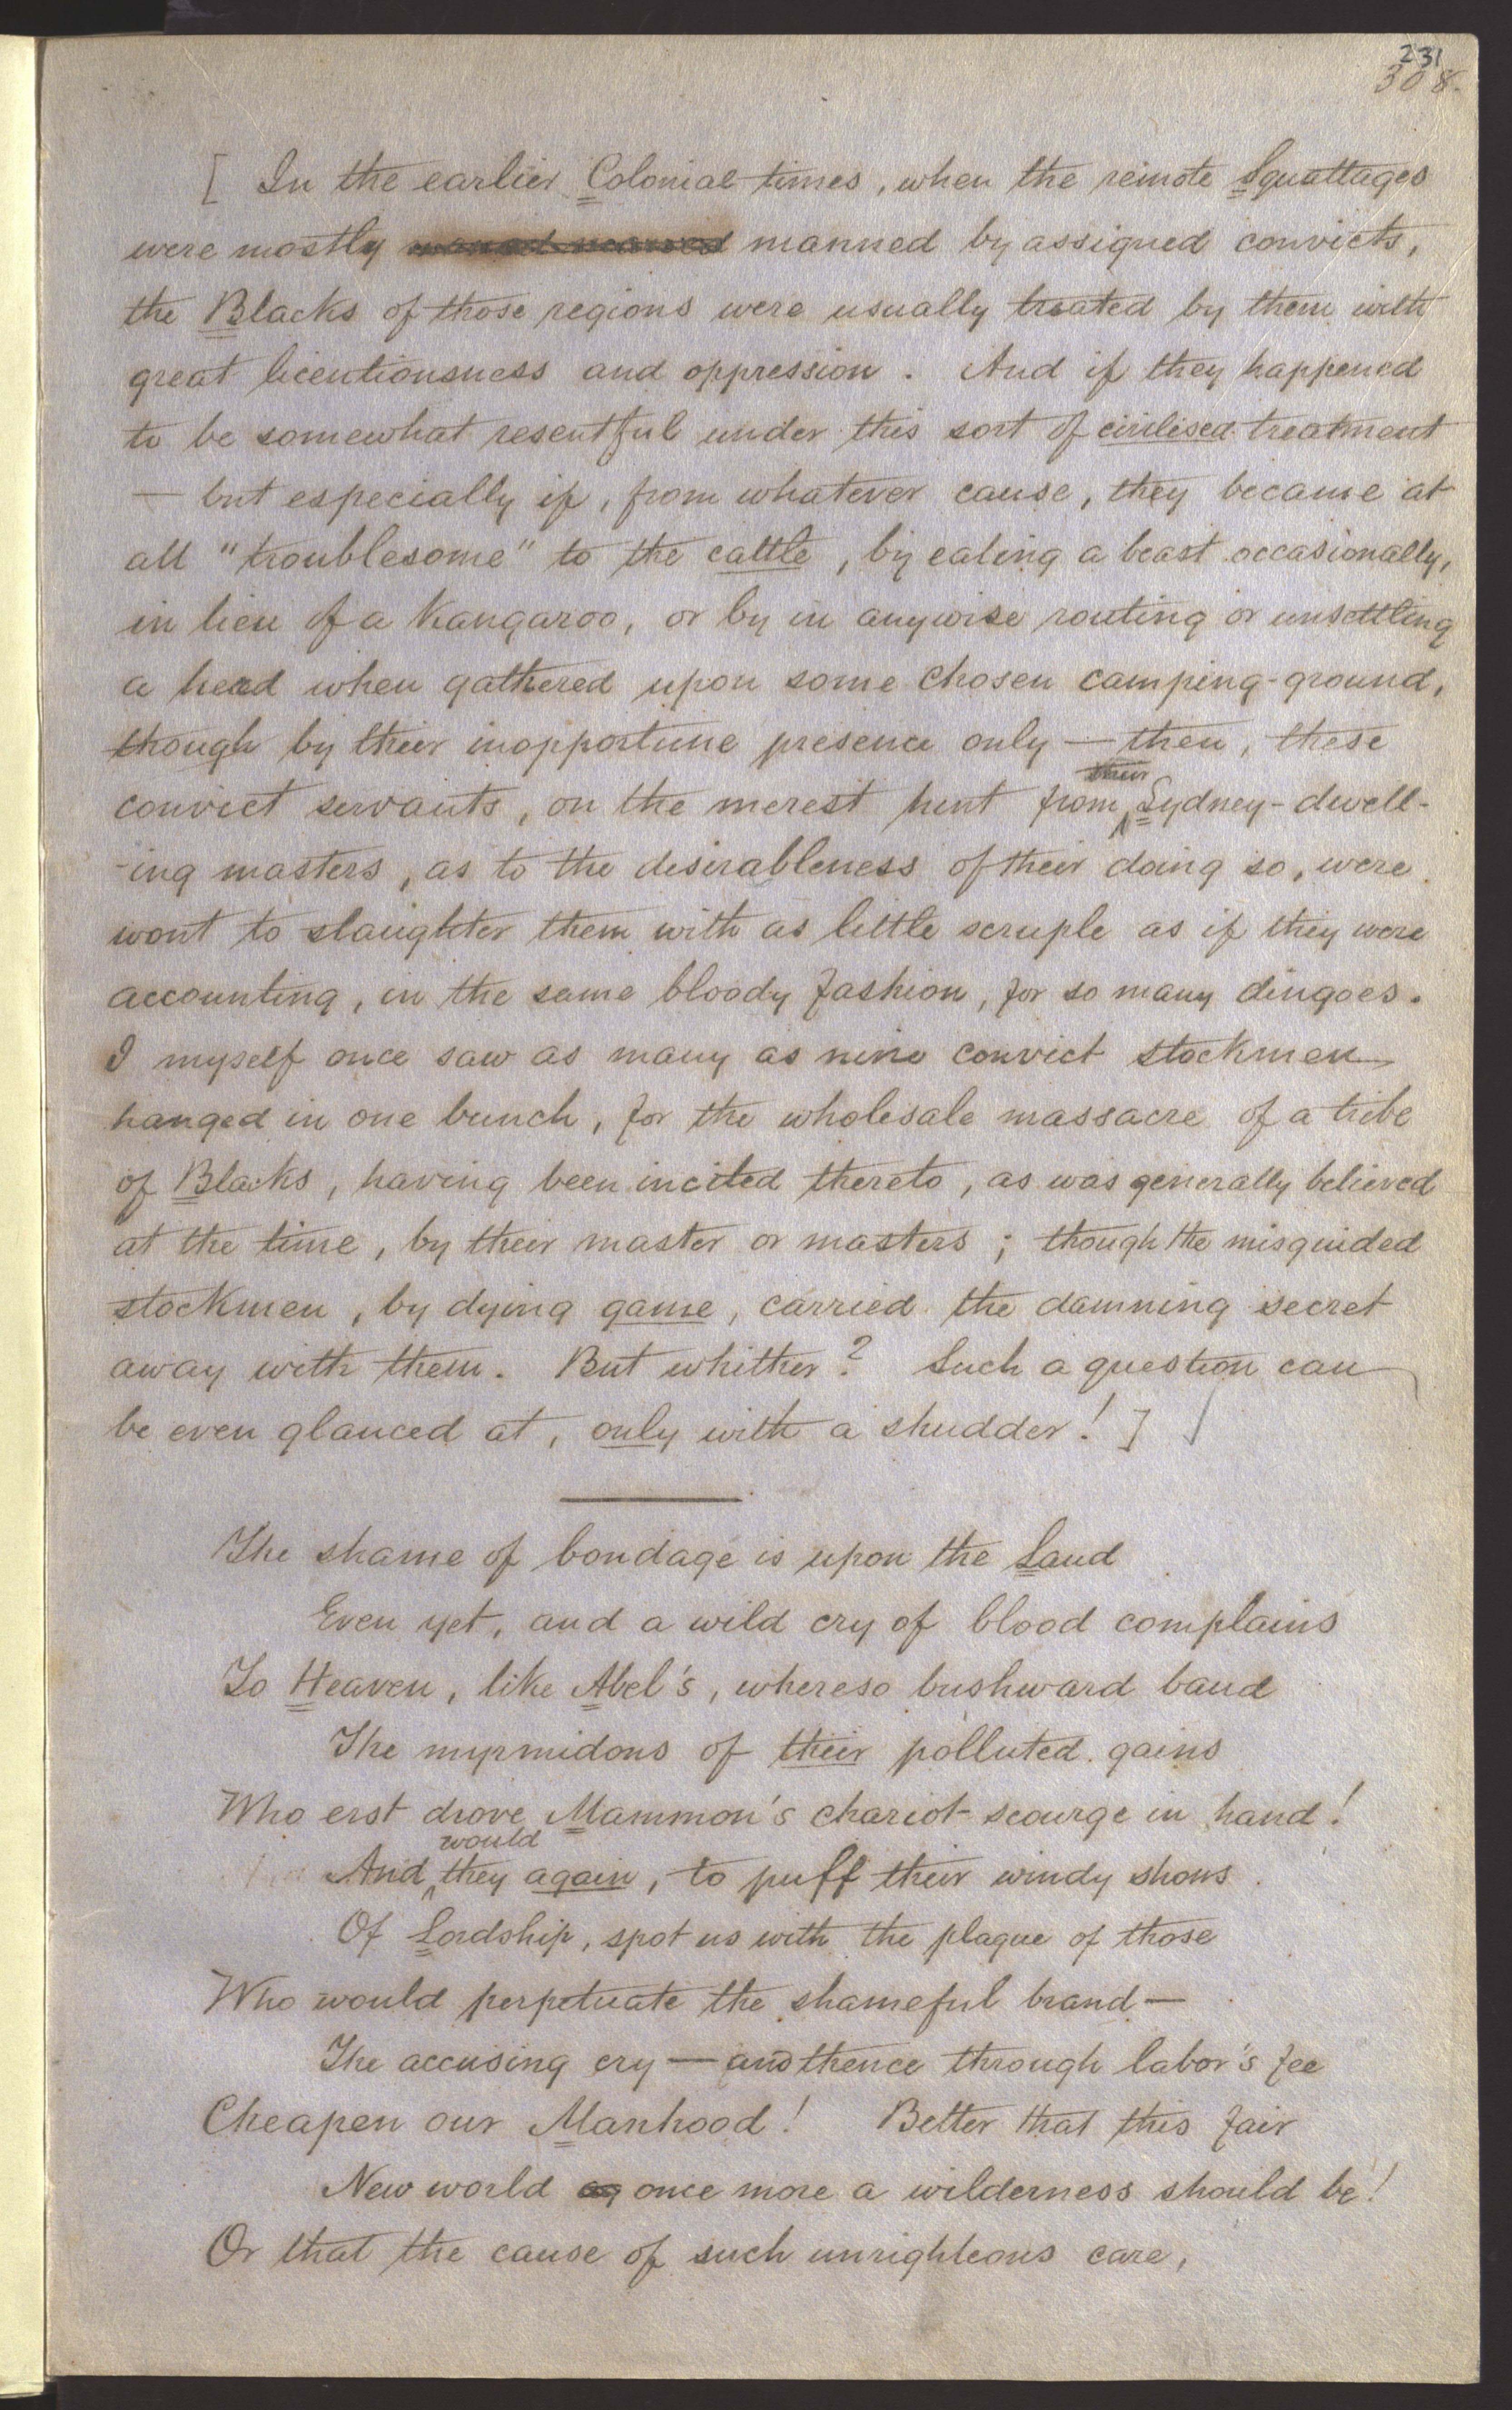 231
308.
[ In the earlier Colonial times, when the remote Squattages
were mostly manned by assigned convicts,
the Blacks of those regions were usually treated by them with
great licentiousness and oppression. And if they happened
to be somewhat resentful under this sort of civilised treatment
— but especially if, from whatever cause, they became at
all "troublesome" to the cattle, by eating a beast occasionally,
in lieu of a Kangaroo, or by in anywise routing or unsettling
a head when gathered upon some chosen camping-ground,
though by their inopportune presence only — then, these
their
convict servants, on the merest hint from Sydney-dwell-
-ing masters, as to the desirableness of their doing so, were
wont to slaughter them with as little scruple as if they were
accounting, in the same bloody fashion, for so many dingoes.
I myself once saw as many as nine convict stockmen
hanged in one bunch, for the wholesale massacre of a tribe
of Blacks, having been incited thereto, as was generally believed
at the time, by their master or masters; though the misguided
stockmen, by dying game, carried the damning secret
away with them. But whither? Such a question can
be even glanced at, only with a shudder! ]
The shame of bondage is upon the Land
Even yet, and a wild cry of blood complains
To Heaven, like Abel's, whereso bushward band
The myrmidons of their polluted gains
Who erst drove Mammon's chariot scourge in hand!
would
And they again, to puff their windy shows
Of Lordship, spot us with the plague of those
Who would perpetuate the shameful brand —
The accusing cry — and thence through labor's fee
Cheapen our Manhood! Better that this fair
New world once more a wilderness should be!
Or that the cause of such unrighteous care,